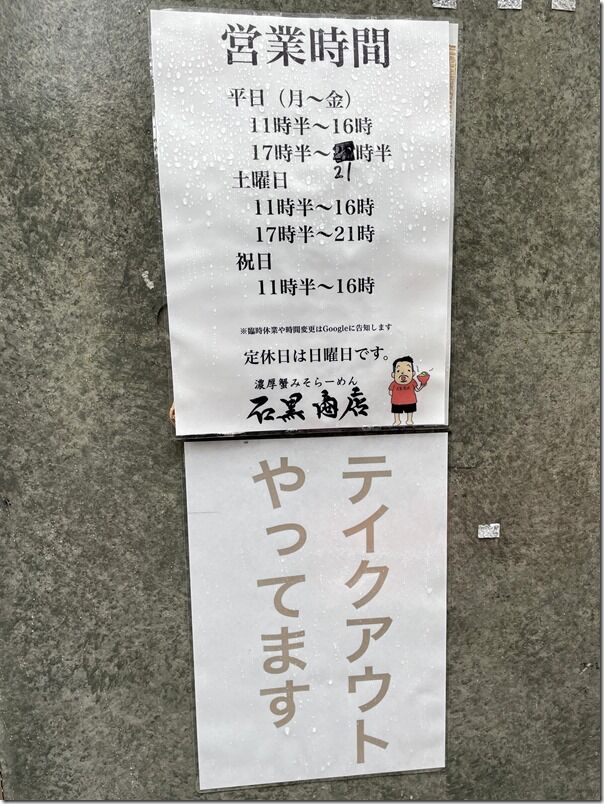 営業時間
平日（月～金）
11時半～16時
17時半～時半
21
土曜日
11時半～16時
17時半～21時
祝日
11時半～16時
※臨時休業や時間変更はGoogleに告知します
定休日は日曜日です。
濃厚蟹みそらーめん
石黒商店
テイクアウト
やってます